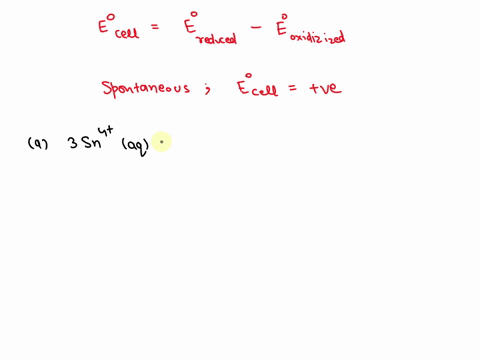 E°cell = E°reduced - E°oxidizized
Spontaneous ; E°cell = +ve
(a) 3 Sn⁴⁺ (aq)